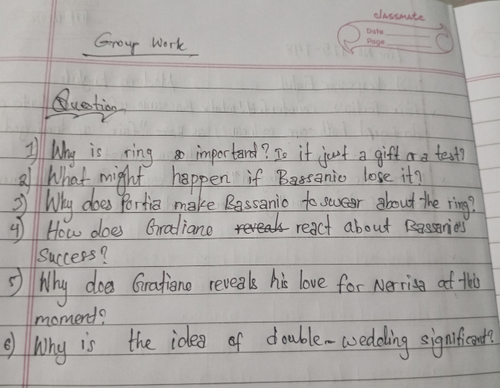 classmate
Date
Page
Group Work
Question
1) Why is ring so important? Is it just a gift or a test?
2) What might happen if Bassanio lose it?
3) Why does Portia make Bassanio to swear about the ring?
4) How does Gratiano reveals react about Bassanio's
Success?
5) Why does Gratiano reveals his love for Nerrisa at this
moment?
6) Why is the idea of double-wedding significant?